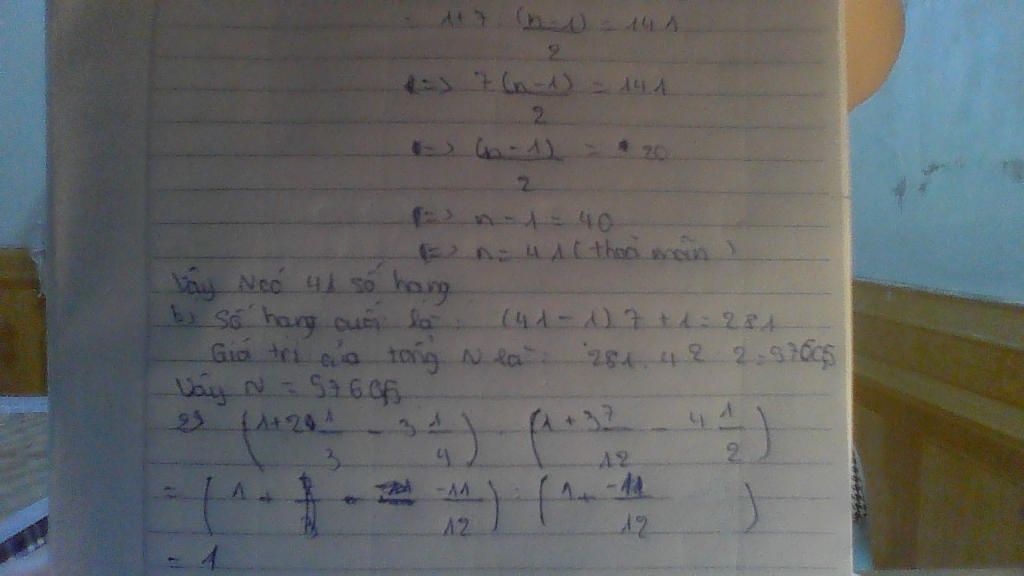 1+7 . (n-1)/2 = 141
<=> 7(n-1)/2 = 141
<=> (n-1)/2 = 20
<=> n-1 = 40
<=> n = 41 (thoả mãn)
Vậy N có 41 số hạng
b, Số hạng cuối là : (41-1)7+1 = 281
Giá trị của tổng N là : 281.42 2 =
Vậy N =
(1+2 1/3 - 3 1/4) (1+3 7/12 - 4 1/2)
= (1 + -11/12) : (1 + -11/12)
= 1